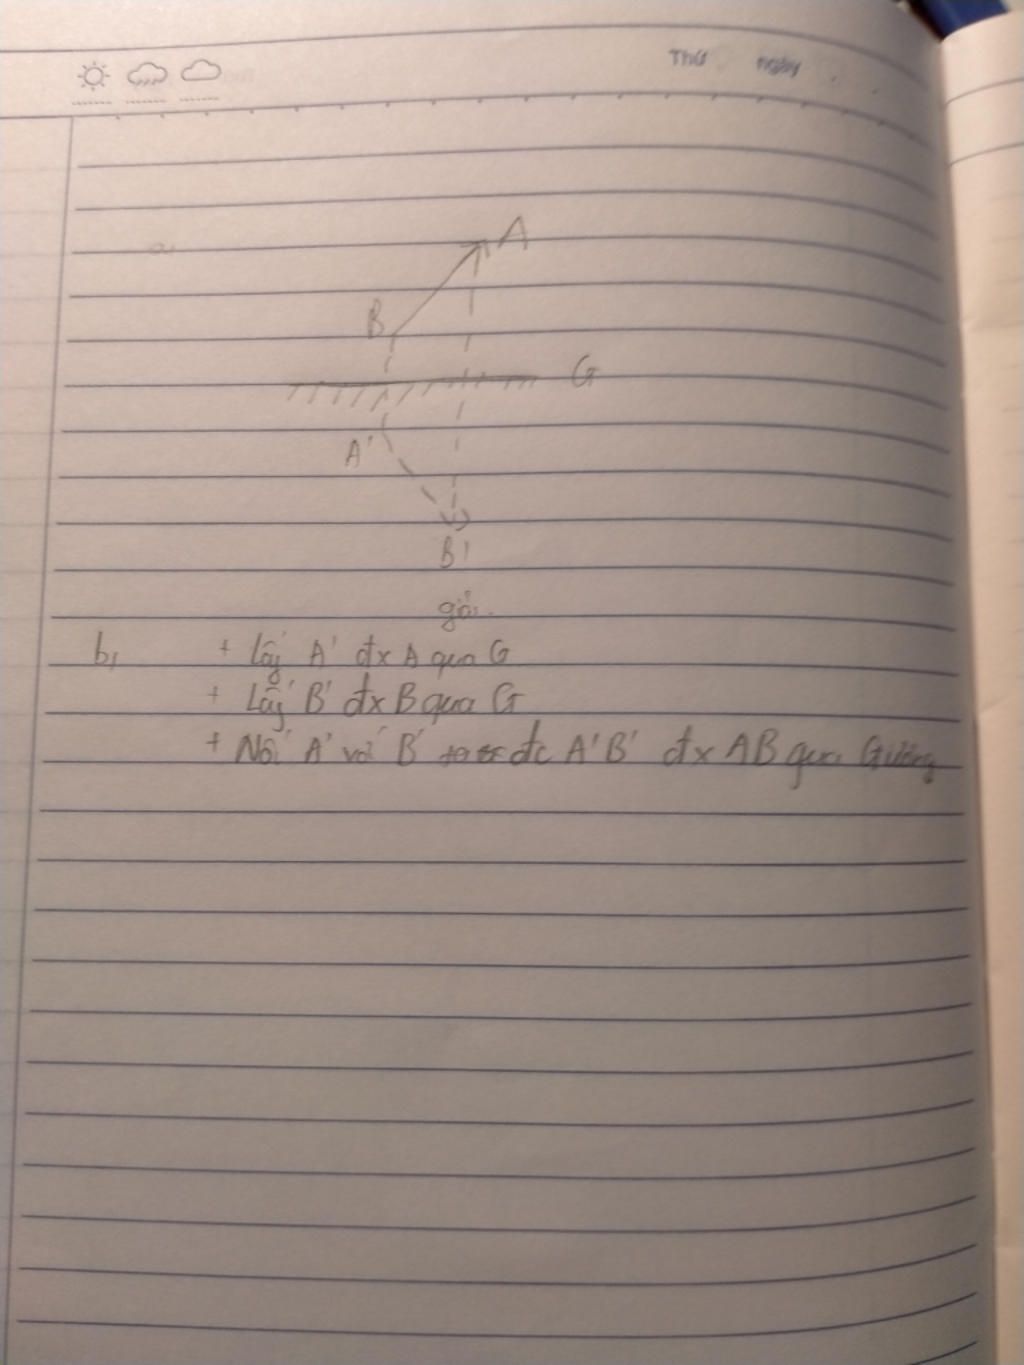 Thứ ngày
a,
A
B
G
A'
B'
giải.
b, + Lấy A' đx A qua G
+ Lấy B' đx B qua G
+ Nối A' với B' đc A'B' đx AB qua Gương